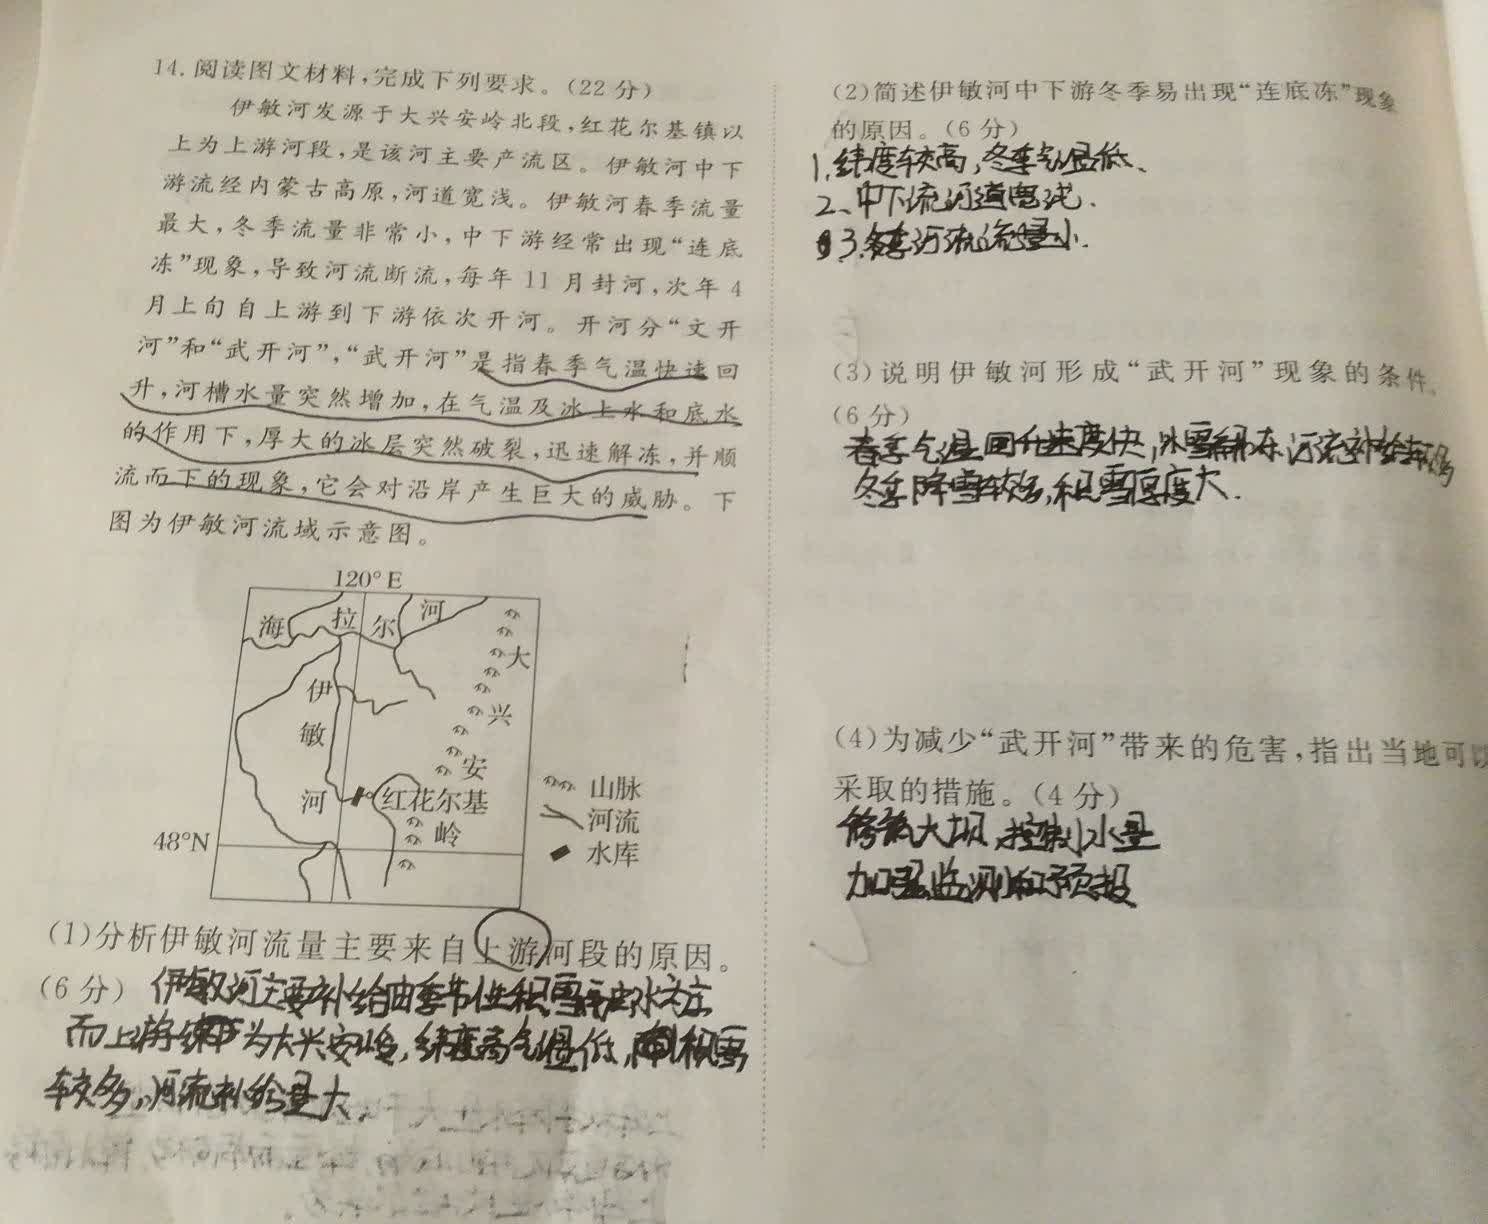 14. 阅读图文材料,完成下列要求。(22分)
伊敏河发源于大兴安岭北段,红花尔基镇以
上为上游河段,是该河主要产流区。伊敏河中下
游流经内蒙古高原,河道宽浅。伊敏河春季流量
最大,冬季流量非常小,中下游经常出现“连底
冻”现象,导致河流断流,每年11月封河,次年4
月上旬自上游到下游依次开河。开河分“文开
河”和“武开河”,“武开河”是指春季气温快速回
升,河槽水量突然增加,在气温及冰上水和底水
的作用下,厚大的冰层突然破裂,迅速解冻,并顺
流而下的现象,它会对沿岸产生巨大的威胁。下
图为伊敏河流域示意图。
120°E
海拉尔河
大兴安岭
伊敏河
红花尔基
48°N
山脉
河流
水库
(1)分析伊敏河流量主要来自上游河段的原因。
(6分)
伊敏河主要补给由季节性积雪融水为主
而上游为大兴安岭,纬度高气温低,积雪
较多,河流补给量大.
(2)简述伊敏河中下游冬季易出现“连底冻”现象
的原因。(6分)
1.纬度较高,冬季气温低、
2、中下流河道宽浅.
3.冬季河流流量小.
(3)说明伊敏河形成“武开河”现象的条件。
(6分)
春季气温回升速度快,冰雪解冻河流补给
冬季降雪较多,积雪厚度大.
(4)为减少“武开河”带来的危害,指出当地可以
采取的措施。(4分)
修筑大坝,控制水量
加强监测和预报